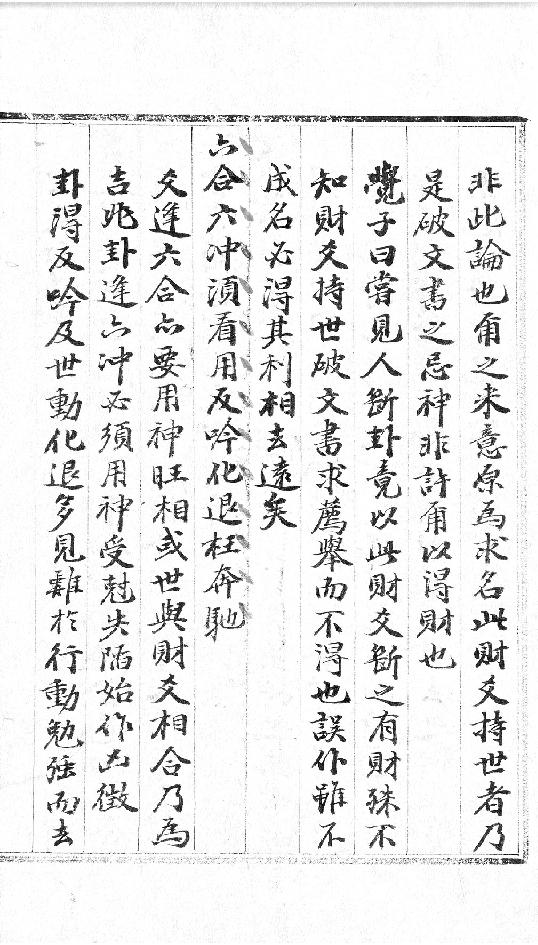 非此論也甭之来意原爲求名此財爻持世者乃
是破文書之忌神非許甭以得財也
覺子曰嘗見人斷卦竟以此財爻斷之有財殊不
知財爻持世破文書求薦舉而不得也誤仆雖不
成名必得其利相去遠矣
六合六冲湏看用反吟化退枉奔馳
爻逢六合亦要用神旺相或世與財爻相合乃為
吉兆卦逢六冲必須用神受尅失陷始作凶徵
卦得反吟及世動化退多見難於行動勉强而去